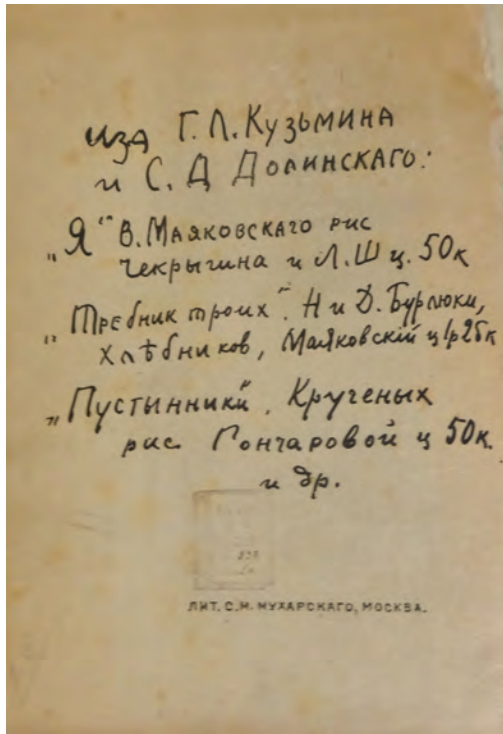 изд Г.Л.Кузьмина
и С.Д Долинскаго:
„Я" В.Маяковскаго рис
Чекрыгина и Л.Ш ц. 50к
„Требник троих". Н и Д. Бурлюки,
Хлѣбников, Маяковскій ц 1р25к
„Пустынники". Крученых
рис Гончаровой ц 50к.
и др.
ЛИТ. С.М. МУХАРСКАГО, МОСКВА.